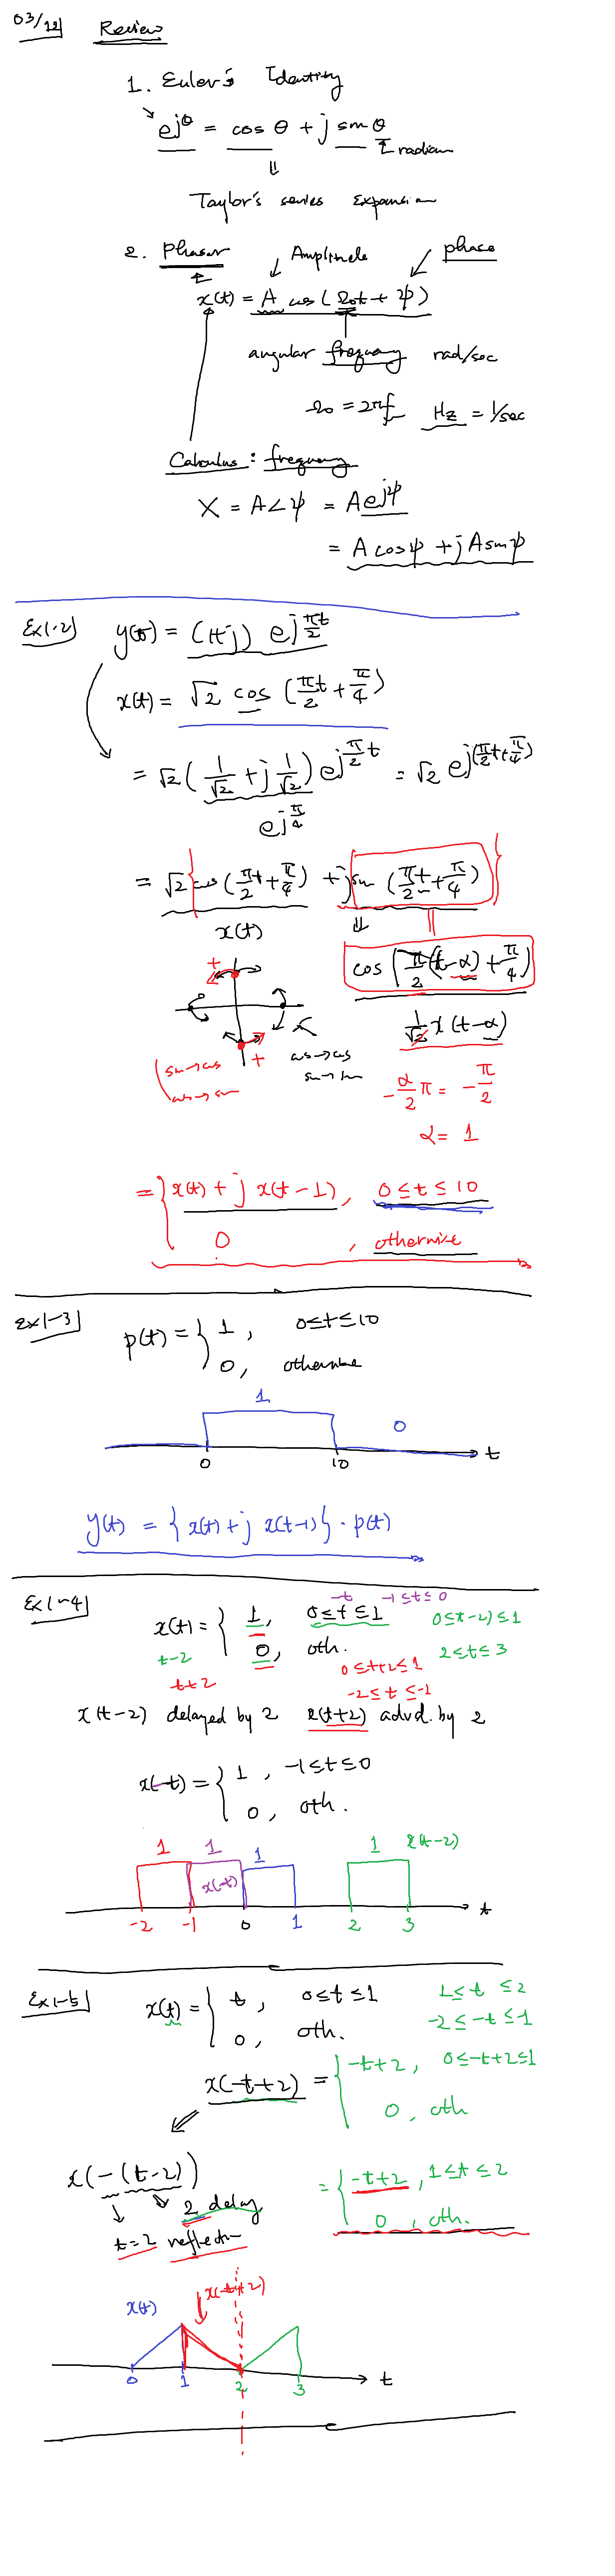 03/12 Review
1. Euler's Identity
e^{jθ} = cos θ + j sin θ
radian
⇓
Taylor's series expansion
2. Phasor
Amplitude
phase
x(t) = A cos(Ω₀t + ψ)
angular frequency rad/sec
Ω₀ = 2πf Hz = 1/sec
Calculus : frequency
X = A∠ψ = Ae^{jψ}
= A cosψ + jA sinψ
Ex 1-2) y(t) = (1+j) e^{jπt/2}
x(t) = √2 cos(πt/2 + π/4)
= √2 (1/√2 + j 1/√2) e^{jπ/2 t} = √2 e^{j(π/2 t + π/4)}
e^{jπ/4}
= √2 { cos(π/2 t + π/4) + j sin(π/2 t + π/4) }
x(t)
⇓
cos(π/2 (t-α) + π/4)
+
1/√2 x(t-α)
cos→cos
sin→sin
+
sin→cos
cos→sin
-α/2 π = -π/2
α = 1
= { x(t) + j x(t-1), 0≤t≤10
0 , otherwise
Ex 1-3) p(t) = { 1, 0≤t≤10
0, otherwise
1
0
0 10 t
y(t) = { x(t) + j x(t-1) } · p(t)
Ex 1-4)
-t -1≤t≤0
x(t) = { 1, 0≤t≤1 0≤t-2≤1
t-2 0, oth. 2≤t≤3
t+2 0≤t+2≤1
-2≤t≤-1
x(t-2) delayed by 2 x(t+2) advd. by 2
x(-t) = { 1, -1≤t≤0
0, oth.
1 1 1 1 x(t-2)
x(-t)
-2 -1 0 1 2 3 t
Ex 1-5) x(t) = { t, 0≤t≤1 1≤t≤2
0, oth. -2≤-t≤-1
x(-t+2) = { -t+2, 0≤-t+2≤1
0, oth
x(-(t-2)) = { -t+2, 1≤t≤2
2 delay 0, oth.
t=2 reflection
x(-t+2)
x(t)
0 1 2 3 t